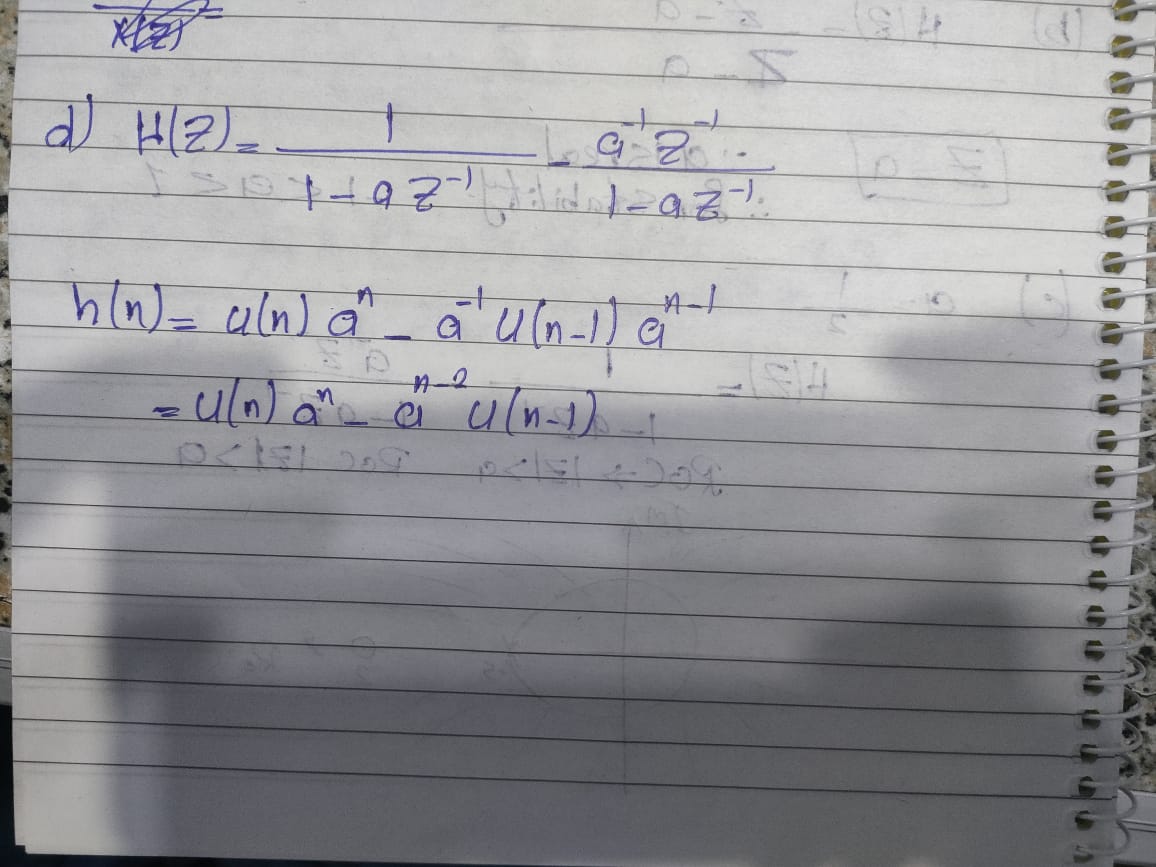 X(Z)
d) H(Z) = 1 / (1 - aZ⁻¹) - a⁻¹Z⁻¹ / (1 - aZ⁻¹)
h(n) = u(n) aⁿ - a⁻¹ u(n-1) aⁿ⁻¹
= u(n) aⁿ - aⁿ⁻² u(n-1)